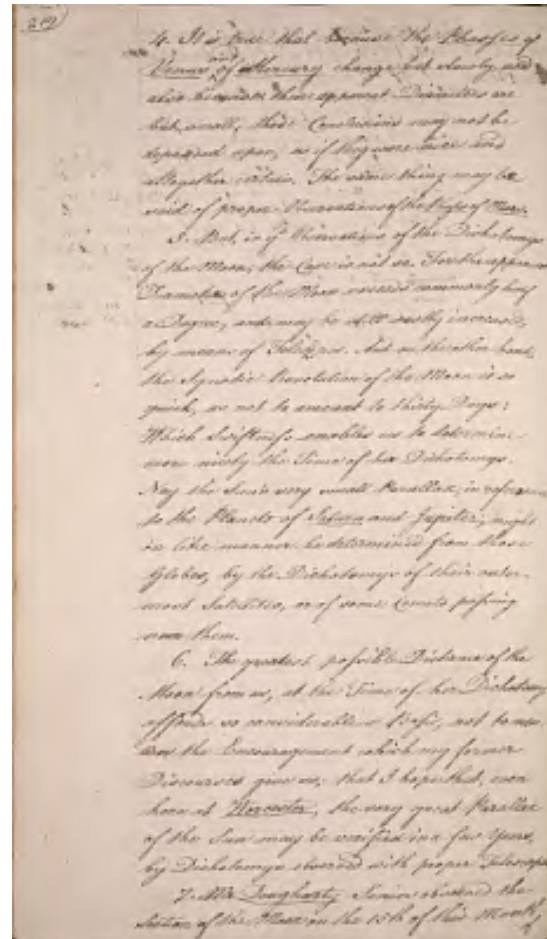 219)
4. It is true that because the Phasses of
Venus and of Mercury change but slowly, and
also because their apparent Diameters are
but small, those Conclusions may not be
depended upon, as if they were nice and
altogether certain. The same thing may be
said of proper Observations of the Phases of Mars.
5. But, in ye Observations of the Dichotomys
of the Moon, the Case is not so. For the apparent
Diameter of the Moon exceeds commonly half
a Degree, and may be still vastly increased,
by means of Telescopes. And on the other hand,
the Synodic Revolution of the Moon is so
quick, as not to amount to thirty Days:
Which Swiftness enables us to determine
more nicely the Time of her Dichotomys.
Nay the Sun's very small Parallax, in reference
to the Planets of Saturn and Jupiter, might
in like manner be determined from those
Globes, by the Dichotomys of their outer-
most Satellites, or of some Comets passing
near them.
6. The greatest possible Distance of the
Moon from us, at the Time of her Dichotomy
affords so considerable a Basis, not to men-
tion the Encouragement which my former
Discourses give us, that I hope that, even
here at Worcester, the very great Parallax
of the Sun may be verified in a few Years,
by Dichotomys observed with proper Telescopes
7. Mr Dougharty Senior observed the
Section of the Moon on the 15th of this Month,